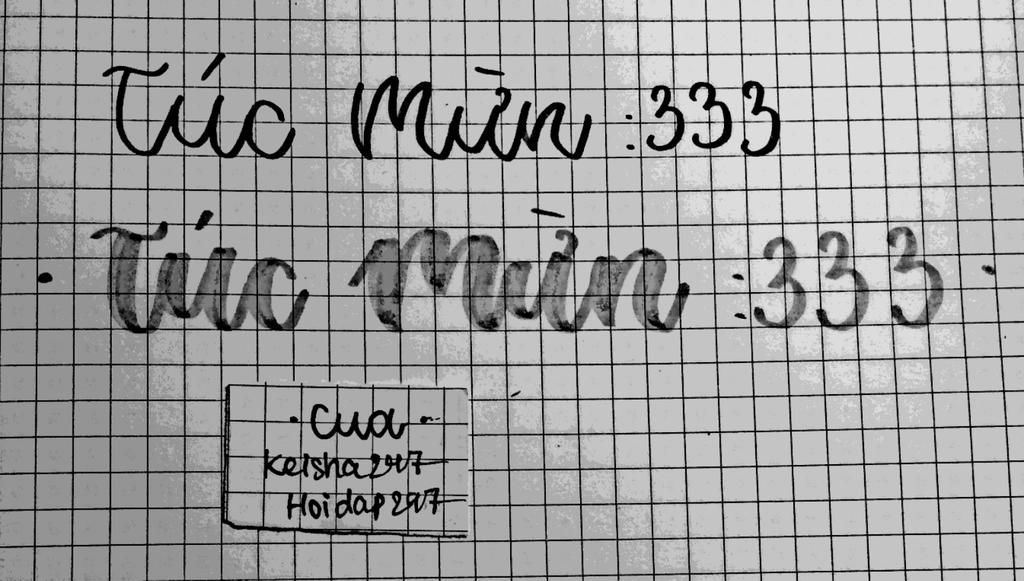 Tức Mừn :333
· Tức Mừn :333 ·
· cua ·
Keisha2417
Hoidap247